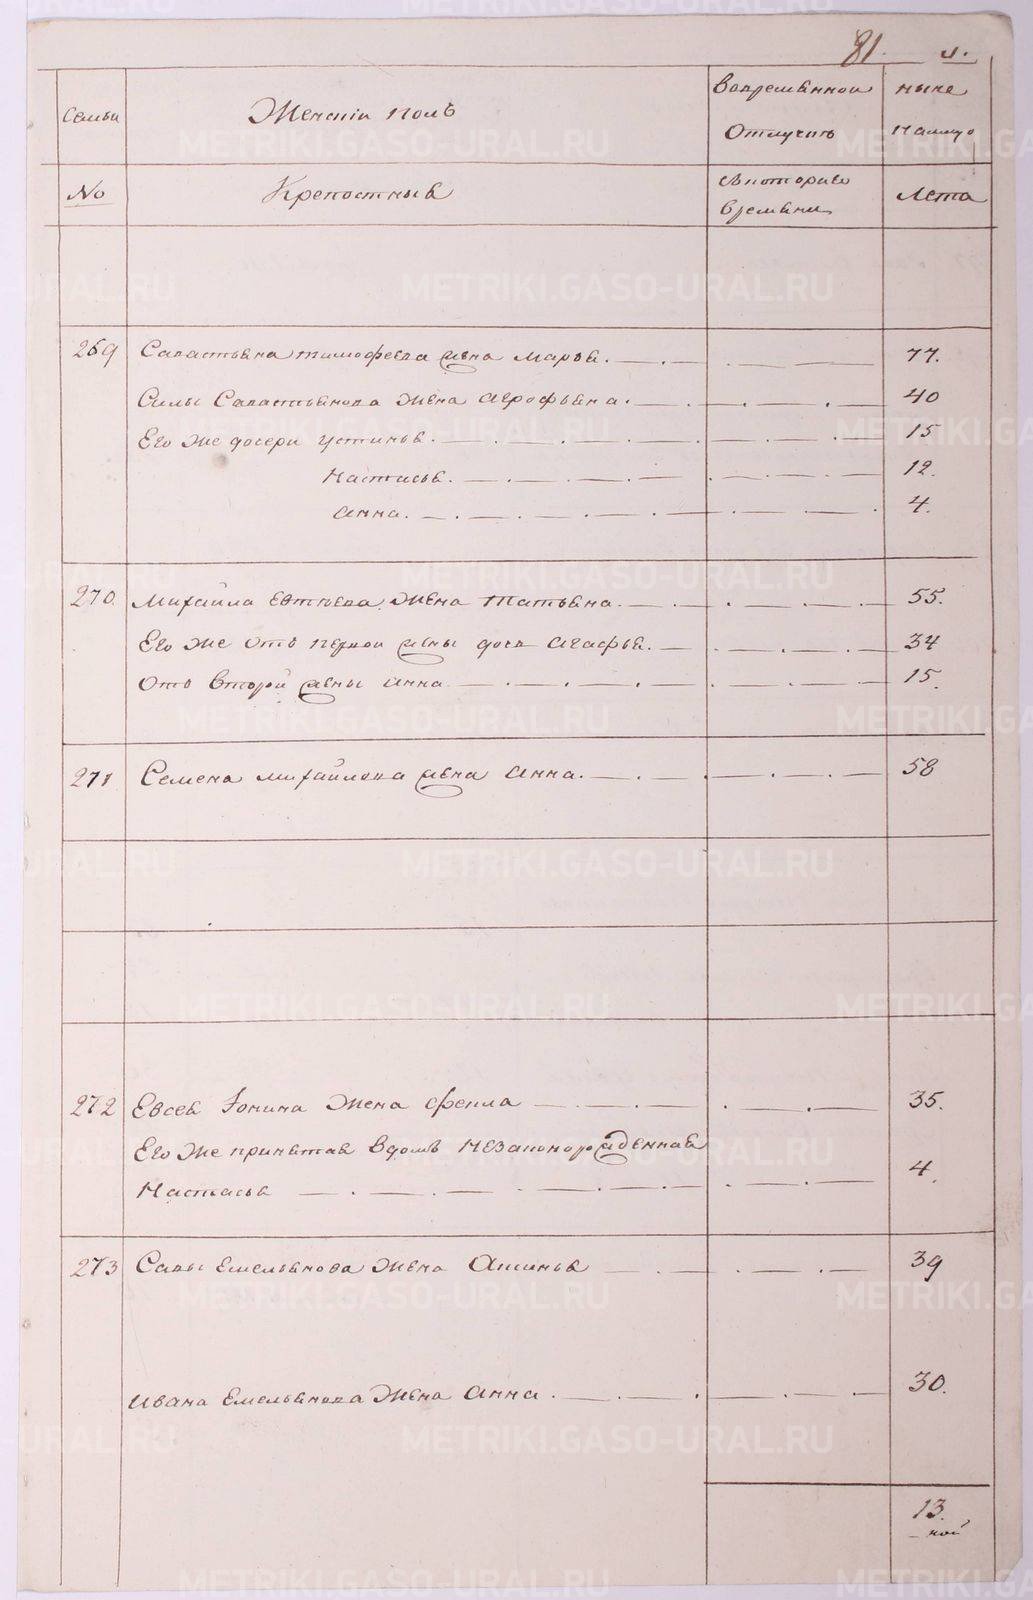 81.
Семьи Женскiй полъ Вовременной ныне
Отлучкъ Налицо
№ Крепостные Съкоторого Лета
времяни
269 Савастьяна тимофеева жена Марья. 77.
Силы Савастьянова Жена Аерофьена. 40
Его же дочери устинья. 15
Настасья. 12.
Анна. 4.
270. Михайла Евтеева Жена татьяна. 55.
Его же отъ первой жены дочь агафья. 34
отъ второй жены анна 15.
271 Семена михайлова жена анна. 58
272 Евсея Iонина жена фекла 35.
Его же принятая вдомъ незаконорожденная
Настасья 4.
273 Савы Емельянова жена Аксинья 39
ивана Емельянова Жена анна. 30.
13.
METRIKI.GASO-URAL.RU